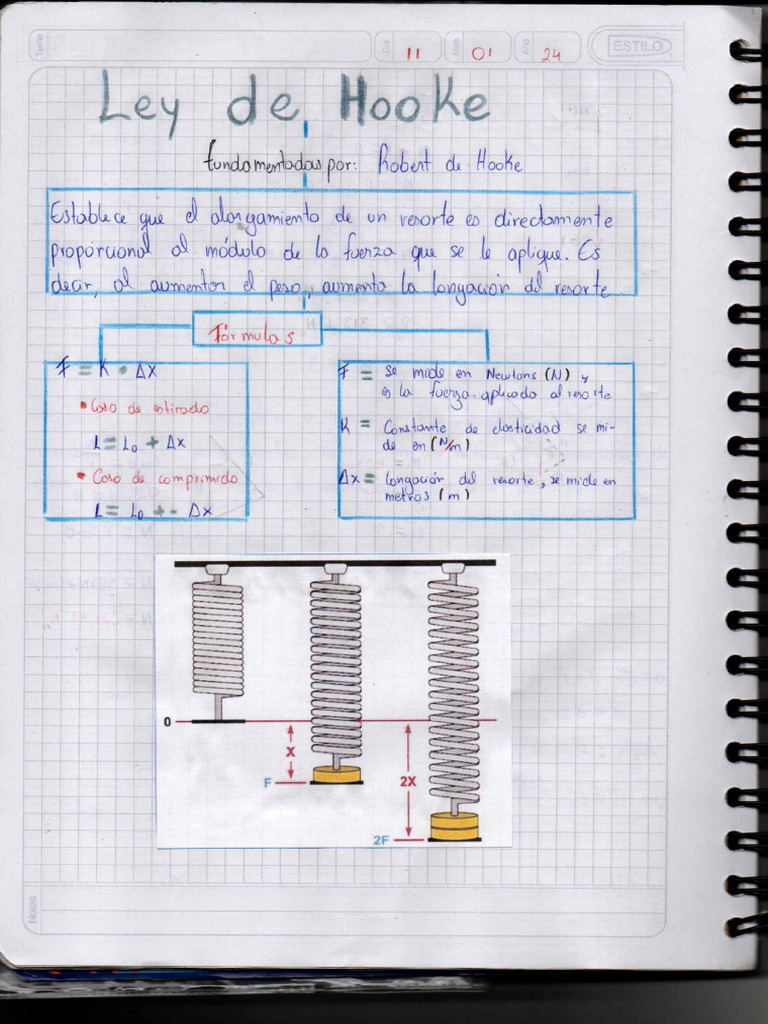 Tema
Día 11 Mes 01 Año 24
ESTILO
Ley de Hooke
fundamentadas por: Robert de Hooke
Establece que el alargamiento de un resorte es directamente
proporcional al módulo de la fuerza que se le aplique. Es
decir, al aumentar el peso, aumenta la longación del resorte
Fórmulas
F = K • Δx
• Caso de estirado
L = L₀ + Δx
• Caso de comprimido
L = L₀ + - Δx
F = Se mide en Newtons (N) y
es la fuerza aplicado al resorte
K = Constante de elasticidad se mi-
de en (N/m)
Δx = longación del resorte, se mide en
metros (m)
0
X
F
2X
2F
Notas